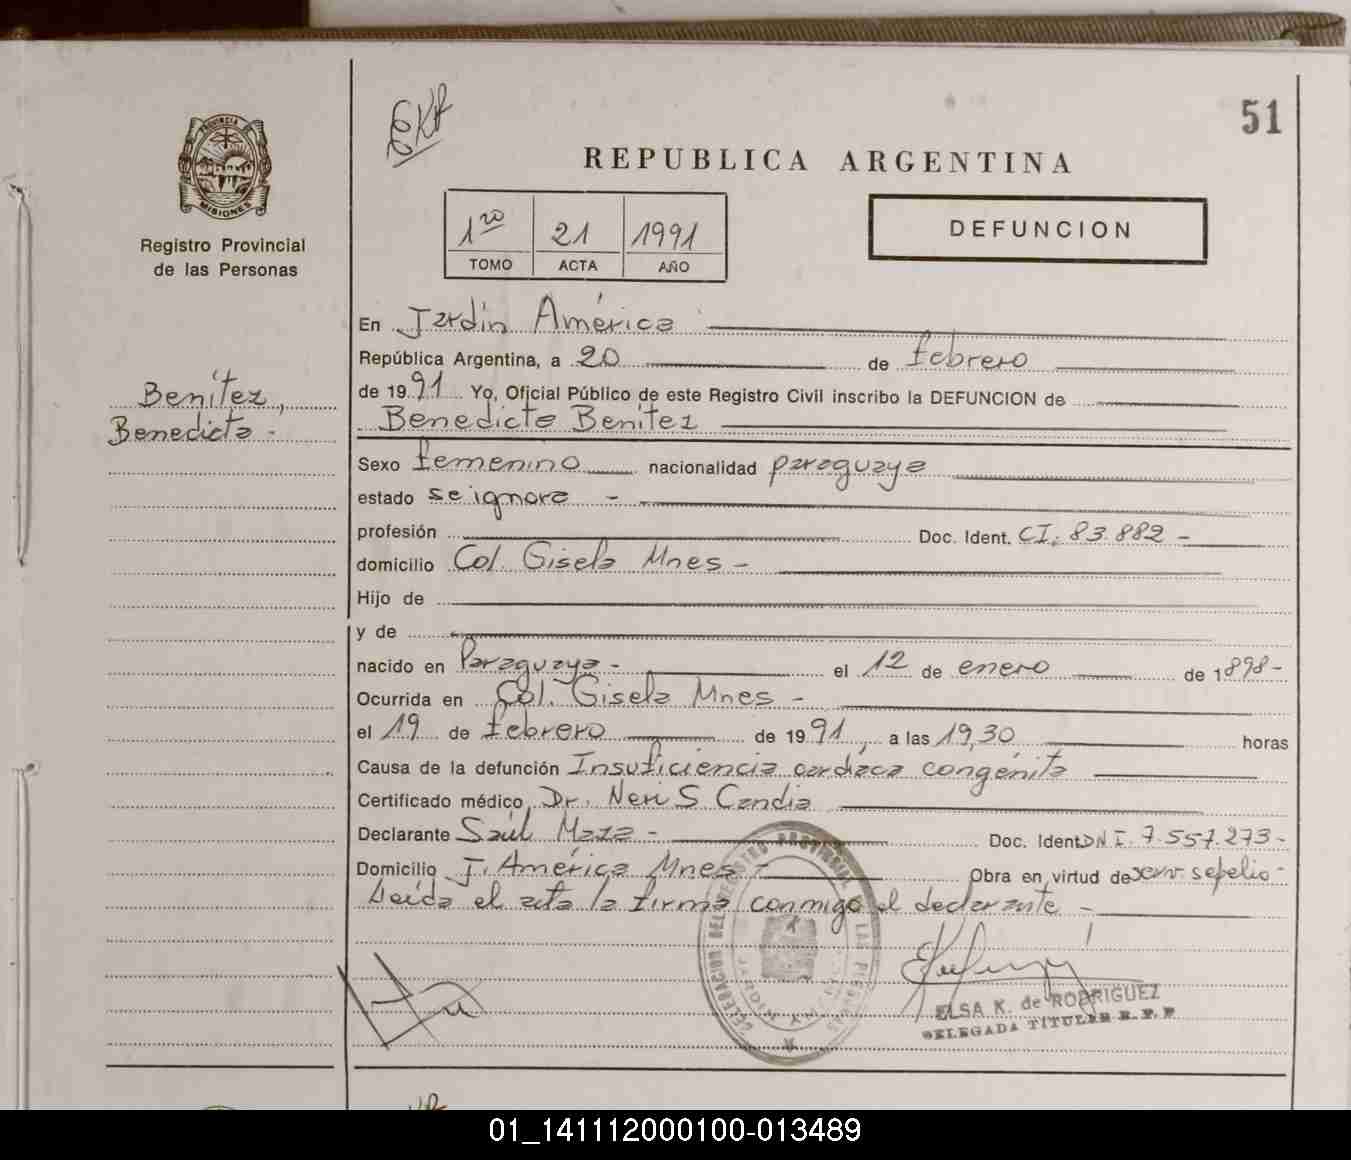 EKR
51
PROVINCIA DE
MISIONES
Registro Provincial
de las Personas
REPUBLICA ARGENTINA
1ro 21 1991
TOMO ACTA AÑO
DEFUNCION
Benítez,
Benedicta -
En Jardín América
República Argentina, a 20 de febrero
de 1991 Yo, Oficial Público de este Registro Civil inscribo la DEFUNCION de
Benedicta Benítez
Sexo femenino nacionalidad paraguaya
estado se ignora -
profesión Doc. Ident. CI. 83.882 -
domicilio Col. Gisela Mnes -
Hijo de
y de
nacido en Paraguaya - el 12 de enero de 1898-
Ocurrida en Col. Gisela Mnes -
el 19 de febrero de 1991, a las 19,30 horas
Causa de la defunción Insuficiencia cardíaca congénita
Certificado médico Dr. Neri S Candia
Declarante Saúl Maza - Doc. Ident DNI. 7.557.273-
Domicilio J. América Mnes - Obra en virtud de serv. sepelio -
Leída el acta la firma conmigo el declarante -
DELEGACION DEL REGISTRO PROVINCIAL DE LAS PERSONAS
JARDIN AMERICA
ELSA K. de RODRIGUEZ
DELEGADA TITULAR R. P. P
01_141112000100-013489